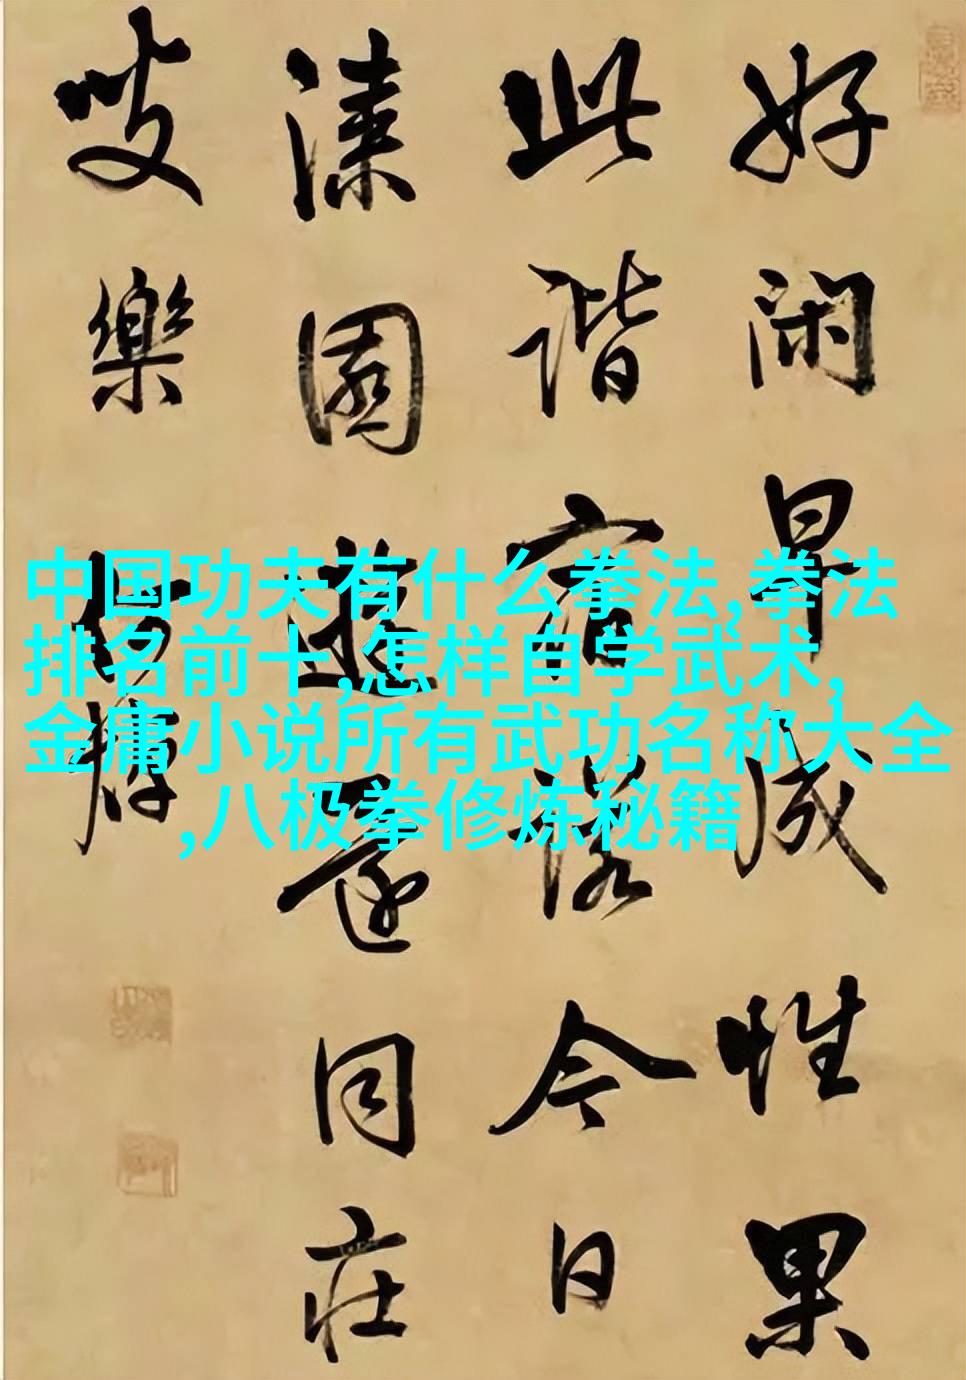 好闲早成性果
此谐宿诺今日
漆園遊還同庄
叟樂
中国功夫有什么拳法,拳法
排名前十,怎样自学武术,
金庸小说所有武功名称大全
,八极拳修炼秘籍